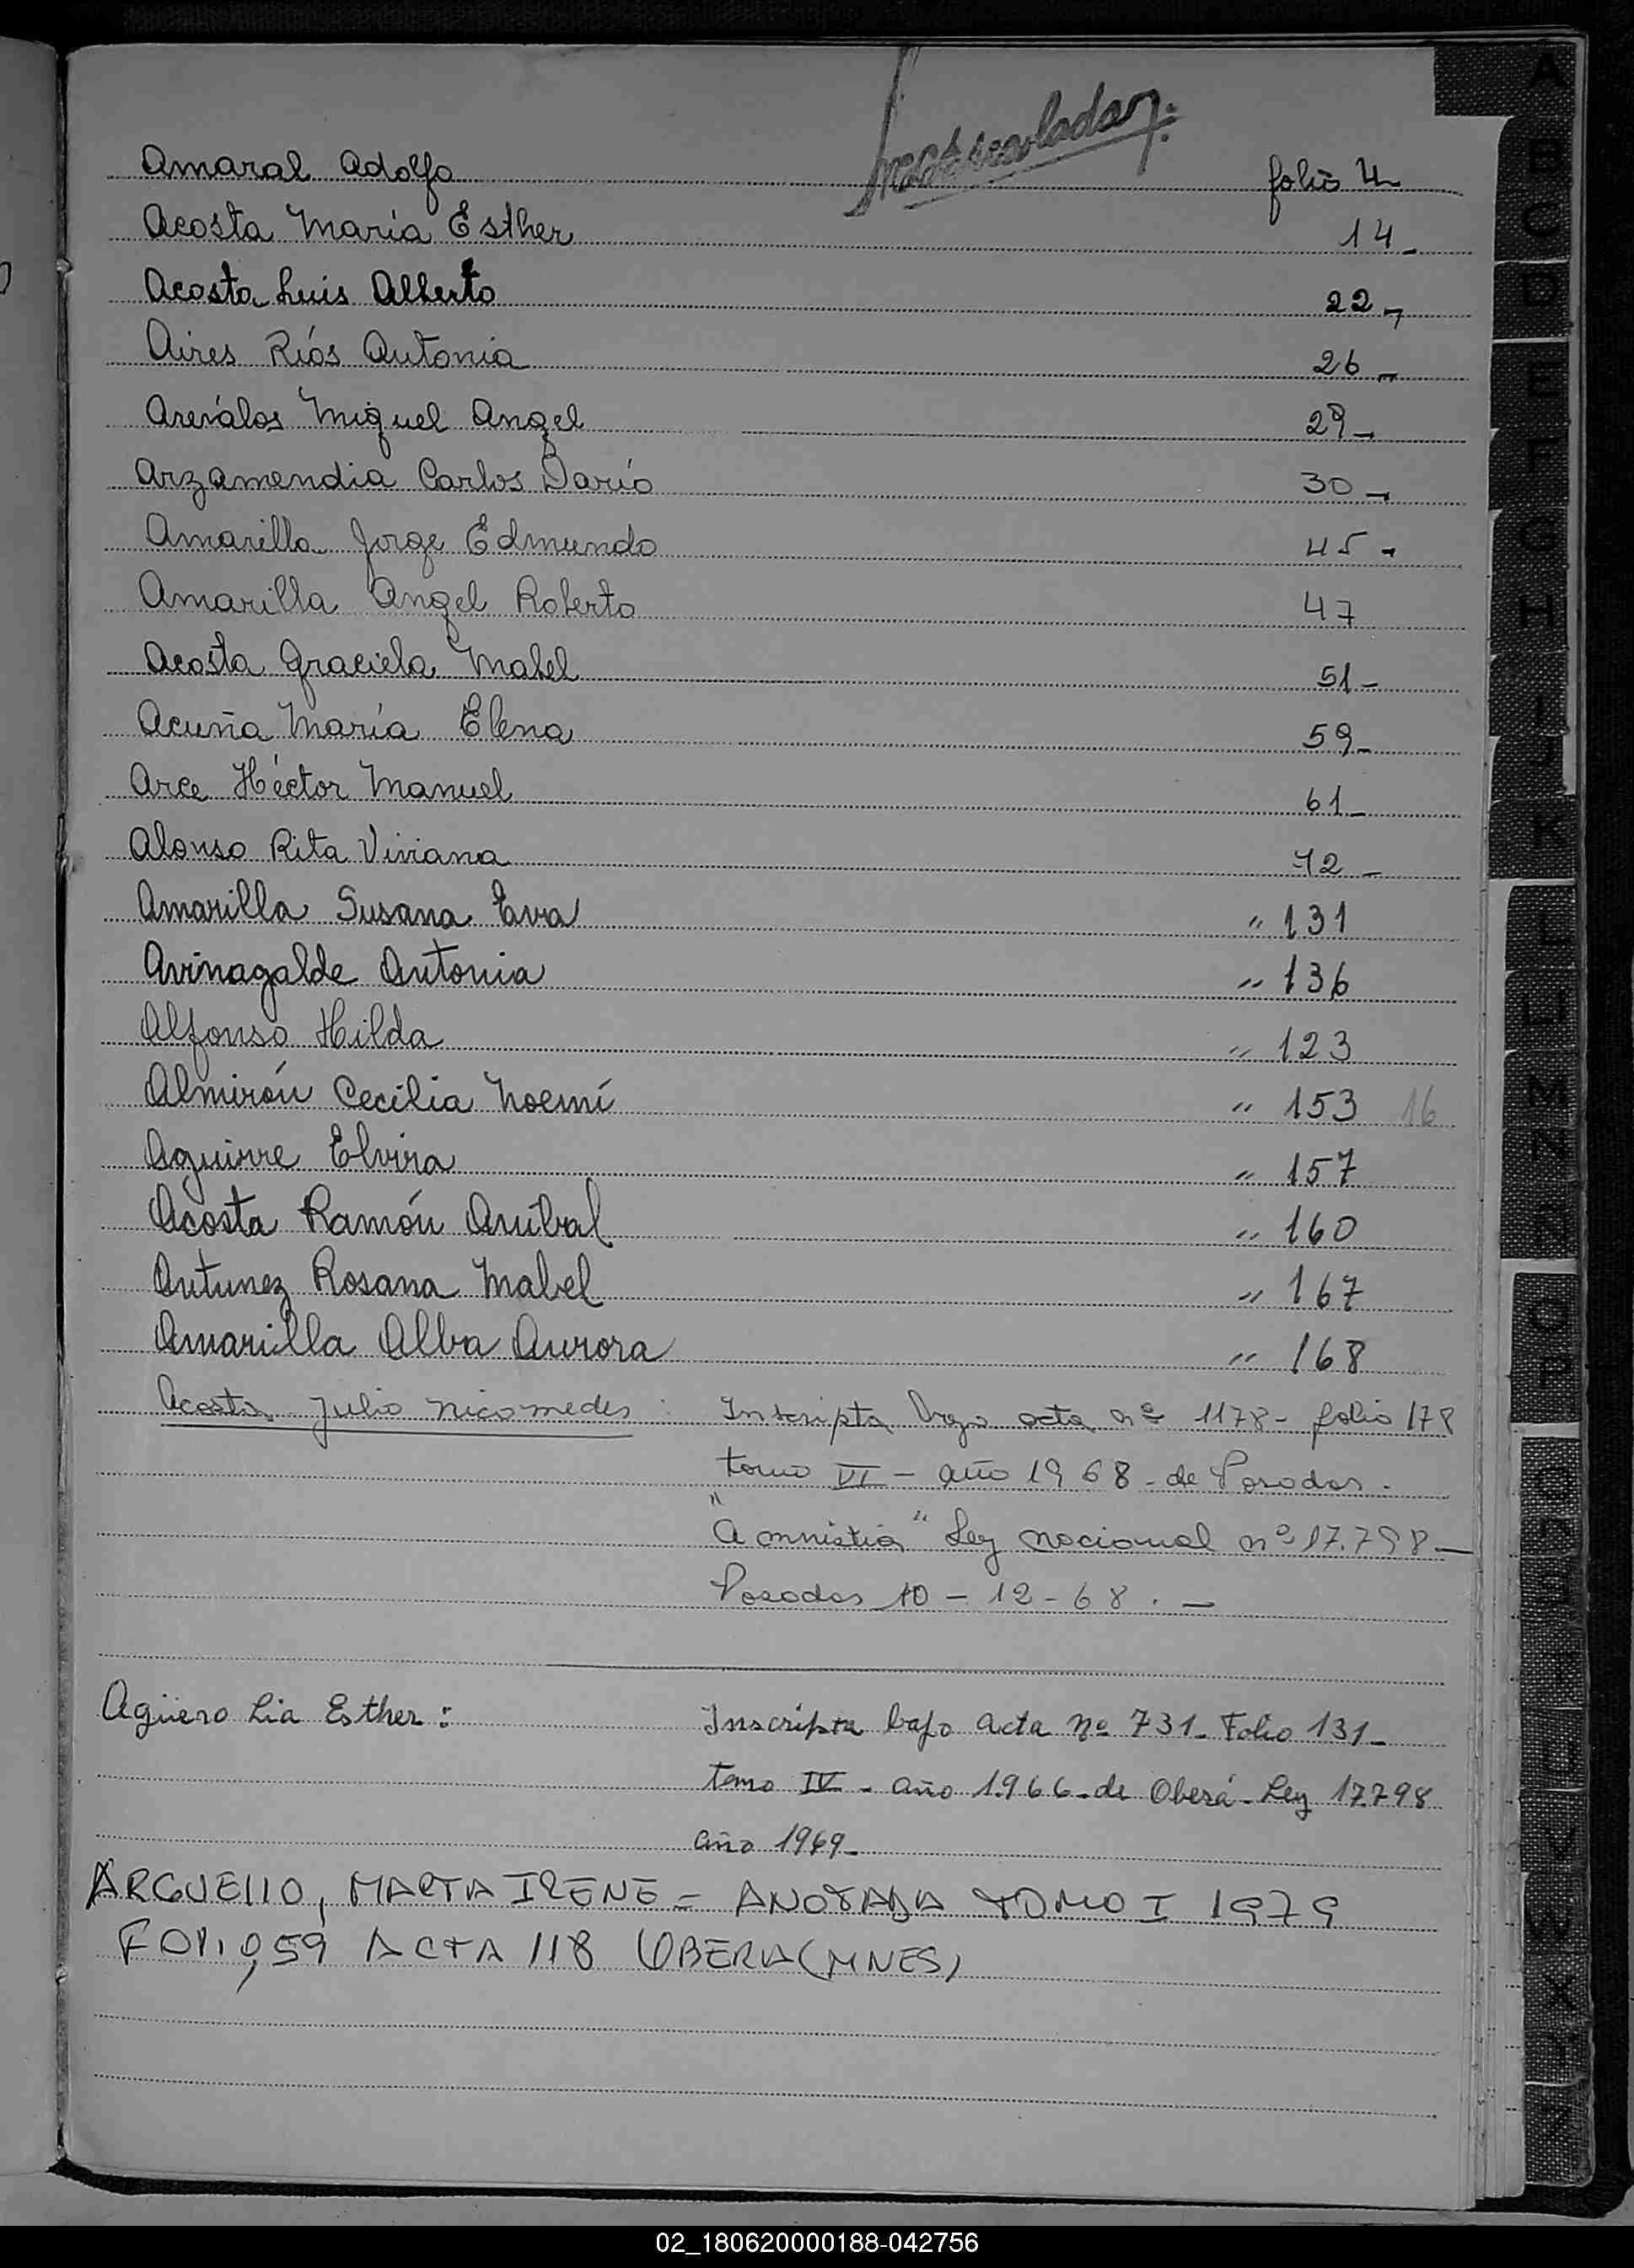 Amaral Adolfo folio 4
Acosta María Esther 14
Acosta Luis Alberto 22
Aires Ríos Antonia 26
Areválos Miguel Angel 29
Arzamendia Carlos Darío 30
Amarilla Jorge Edmundo 45
Amarilla Angel Roberto 47
Acosta Graciela Mabel 51
Acuña María Elena 59
Arce Héctor Manuel 61
Alonso Rita Viviana 72
Amarilla Susana Eva " 131
Avinagalde Antonia " 136
Alfonso Hilda " 123
Almirón Cecilia Noemí " 153 16
Aguirre Elvira " 157
Acosta Ramón Aníbal " 160
Antunez Rosana Mabel " 167
Amarilla Alba Aurora " 168
Acosta Julio Nicomedes: Inscripta acta nº 1178- folio 178
tomo VI - año 1968 - de Posadas.
"Amnistia" Ley nacional nº 17.798 —
Posadas 10 - 12 - 68. —
Agüero Lia Esther: Inscripta bajo acta Nº 731- Folio 131-
tomo IV - año 1966 - de Oberá - Ley 17.798
año 1969-
ARGUELLO, MARTA IRENE = ANOTADA TOMO I 1979
FOLIO, 59 ACTA 118 OBERA (MNES)
A
B
C
D
E
F
G
H
I
J
K
L
LL
M
N
Ñ
O
P
Q
R
S
T
U
V
W
X
Y
Z
02_180620000188-042756